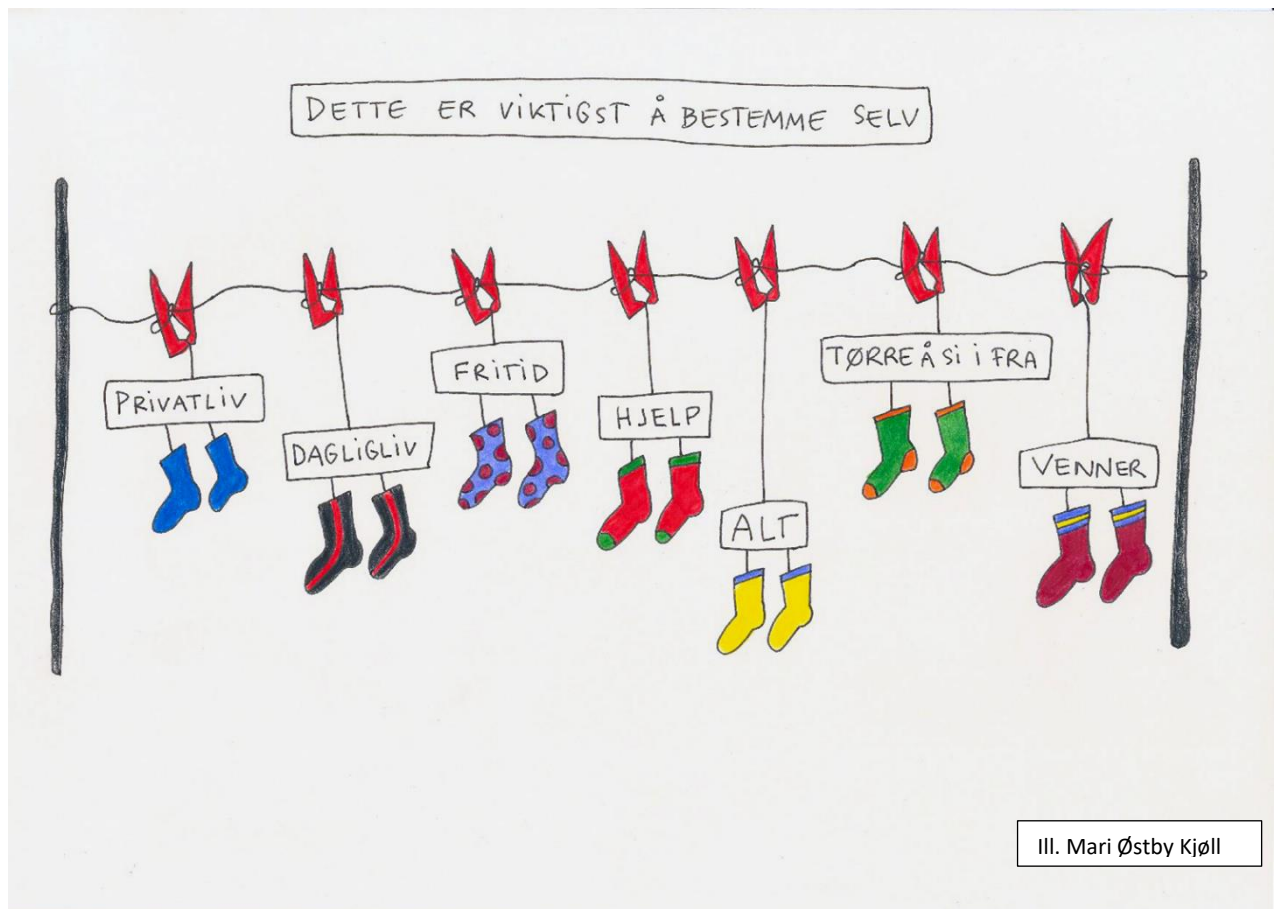 DETTE ER VIKTIGST Å BESTEMME SELV
PRIVATLIV
DAGLIGLIV
FRITID
HJELP
ALT
TØRRE Å SI I FRA
VENNER
Ill. Mari Østby Kjøll